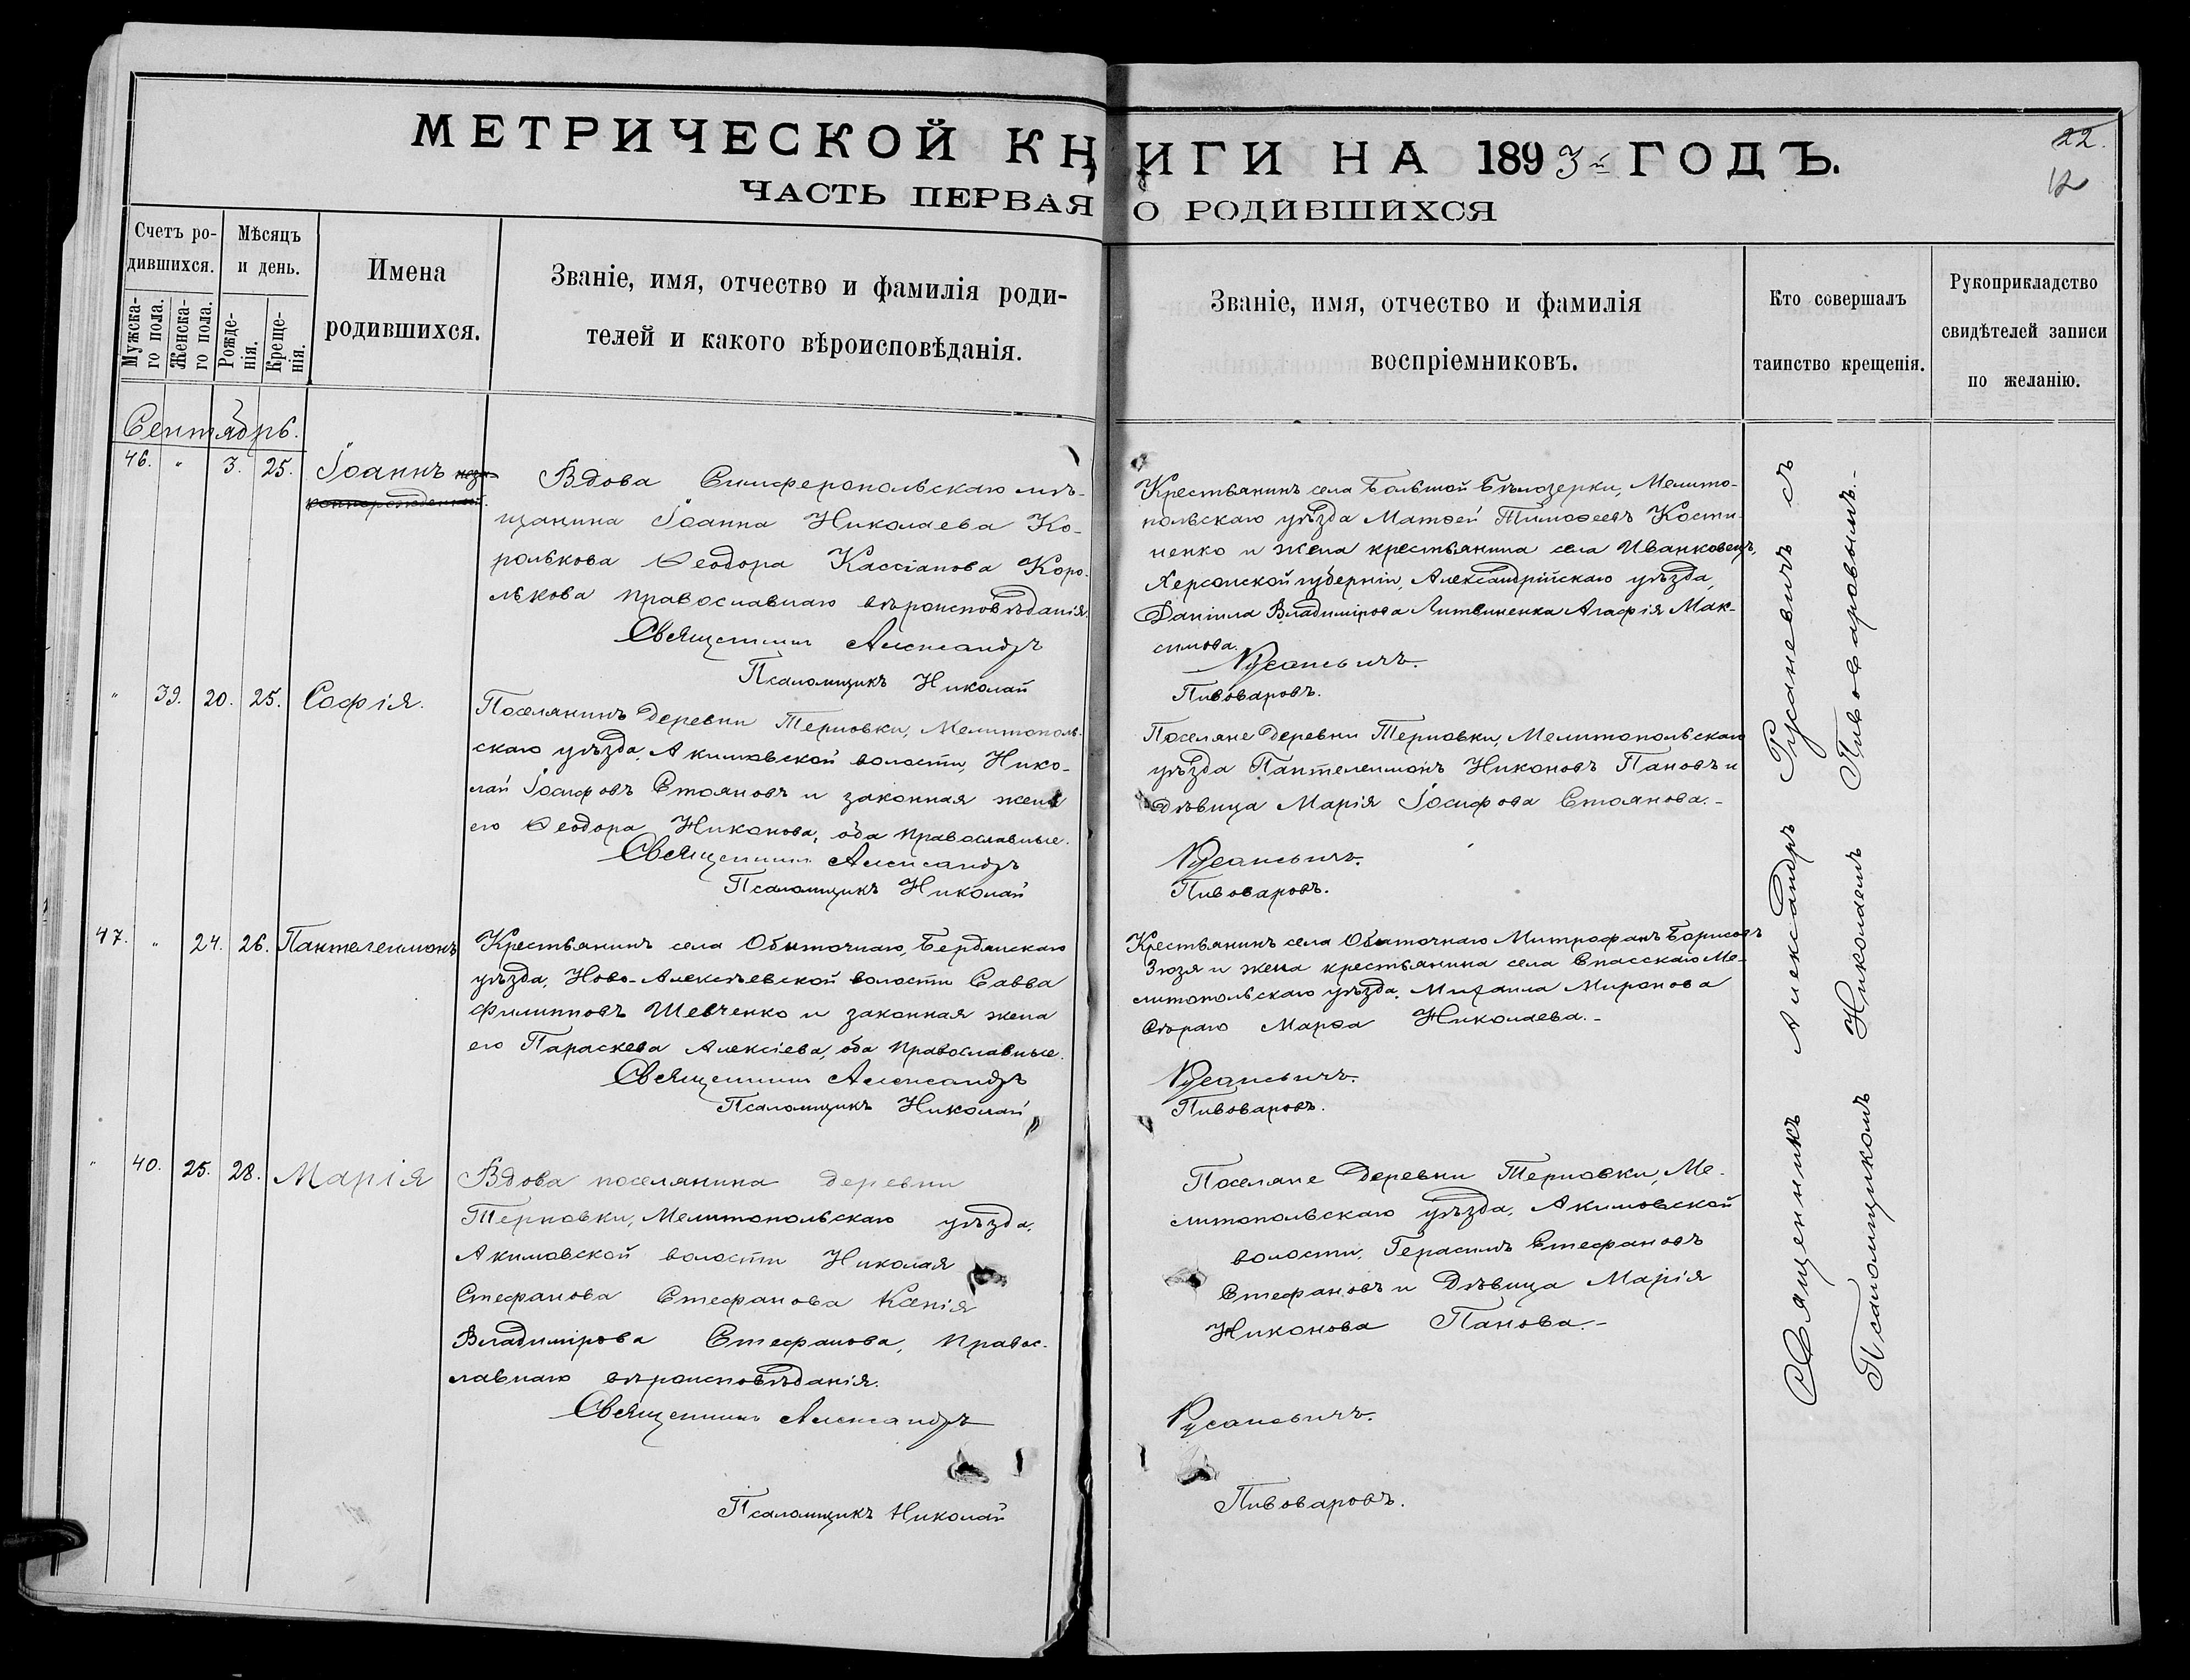 МЕТРИЧЕСКОЙ КНИГИ НА 1893й ГОДЪ.
22.
12
ЧАСТЬ ПЕРВАЯ О РОДИВШИХСЯ
Счетъ ро-
дившихся.
Мужска-
го пола.
Женска-
го пола.
Мѣсяцъ
и день.
Рожде-
нія.
Креще-
нія.
Имена
родившихся.
Званіе, имя, отчество и фамилія роди-
телей и какого вѣроисповѣданія.
Званіе, имя, отчество и фамилія
воспріемниковъ.
Кто совершалъ
таинство крещенія.
Рукоприкладство
свидѣтелей записи
по желанію.
Сентябрь.
46. " 3. 25. Іоаннъ неза-
коннорожденный.
Вдова Симферопольскаго мѣ-
щанина Іоанна Николаева Ко-
ролькова Ѳеодора Кассіанова Коро-
лькова православнаго вѣроисповѣданія.
Священникъ Александръ
Псаломщикъ Николай
Крестьянинъ села Большой Бѣлозерки, Мелито-
польскаго уѣзда Матѳей Тимоѳеевъ Кости-
ненко и жена крестьянина села Иванковецъ,
Херсонской губерніи, Александрійскаго уѣзда,
Даніила Владимірова Литвиненка Агафія Мак-
симова.
Русаневичъ.
Пивоваровъ.
" 39. 20. 25. Софія.
Поселянинъ деревни Терновки, Мелитополь-
скаго уѣзда, Акимовской волости, Нико-
лай Іосифовъ Стояновъ и законная жена
его Ѳеодора Никонова, оба православные.
Священникъ Александръ
Псаломщикъ Николай
Поселяне деревни Терновки, Мелитопольскаго
уѣзда Пантелеимонъ Никоновъ Пановъ и
дѣвица Марія Іосифова Стоянова.-
Русаневичъ.
Пивоваровъ.
47. " 24. 26. Пантелеимонъ
Крестьянинъ села Обыточнаго, Бердянскаго
уѣзда, Ново-Алексѣевской волости Савва
Филипповъ Шевченко и законная жена
его Параскева Алексіева, оба православные.
Священникъ Александръ
Псаломщикъ Николай
Крестьянинъ села Обыточнаго Митрофанъ Борисовъ
Зюзя и жена крестьянина села Спасскаго Ме-
литопольскаго уѣзда, Михаила Миронова
Сѣраго Марѳа Николаева.-
Русаневичъ.
Пивоваровъ.
" 40. 25. 28. Марія
Вдова поселянина деревни
Терновки, Мелитопольскаго уѣзда,
Акимовской волости Николая
Стефанова Стефанова Ксенія
Владимірова Стефанова, правос-
лавнаго вѣроисповѣданія.
Священникъ Александръ
Псаломщикъ Николай
Поселяне деревни Терновки, Ме-
литопольскаго уѣзда, Акимовской
волости, Герасимъ Стефановъ
Стефановъ и дѣвица Марія
Никонова Панова.-
Русаневичъ.
Пивоваровъ.
Священникъ Александръ Русаневичъ съ
Псаломщикомъ Николаемъ Пивоваровымъ.-